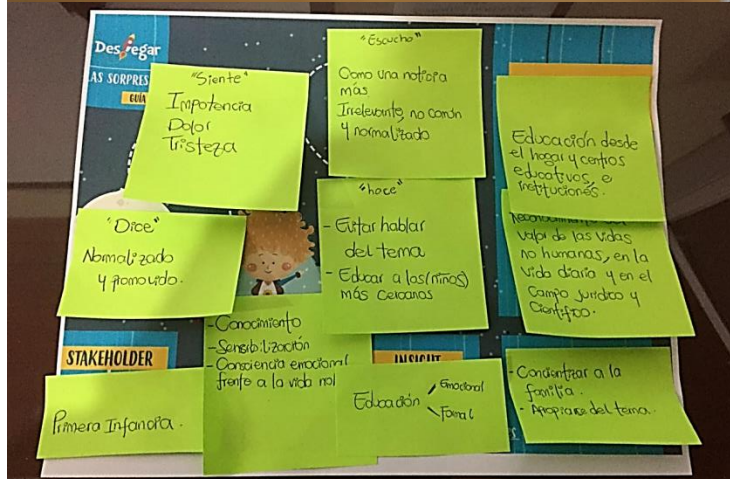 Despegar
AS SORPRES
GUÍA
"Siente"
Impotencia
Dolor
Tristeza
"Escucho"
Como una noticia
más
Irrelevante, no común
y normalizado
Educación desde
el hogar y centros
educativos, e
instituciones.
"Dice"
Normalizado
y promovido.
"hace"
- Evitar hablar
del tema
- Educar a los(niños)
más cercanos
valor de las vidas
no humanas, en la
vida diaria y en el
Campo jurídico y
Científico.
- Conocimiento
- Sensibilización
- Consciencia emocional
frente a la vida no
STAKEHOLDER
Primera Infancia.
INSIGHT
Educación
Emocional
Formal
- Concientizar a la
familia.
- Apropiarse del tema.